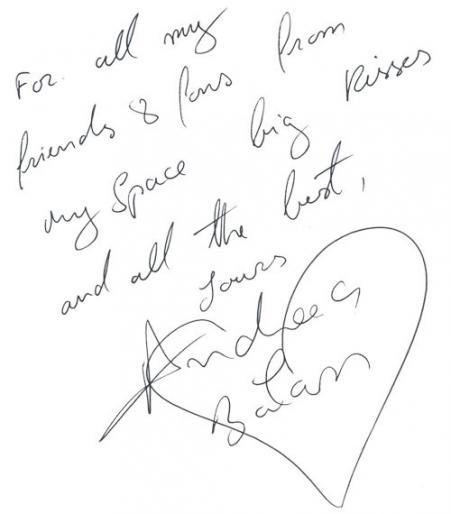 For all my
friends & fans from
my Space big kisses
and all the best,
Yours
Andreea
Balan